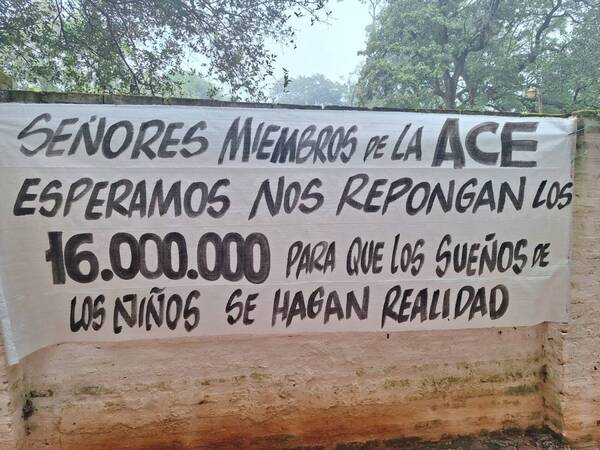 SEÑORES MIEMBROS DE LA ACE
ESPERAMOS NOS REPONGAN LOS
16.000.000 PARA QUE LOS SUEÑOS DE
LOS NIÑOS SE HAGAN REALIDAD